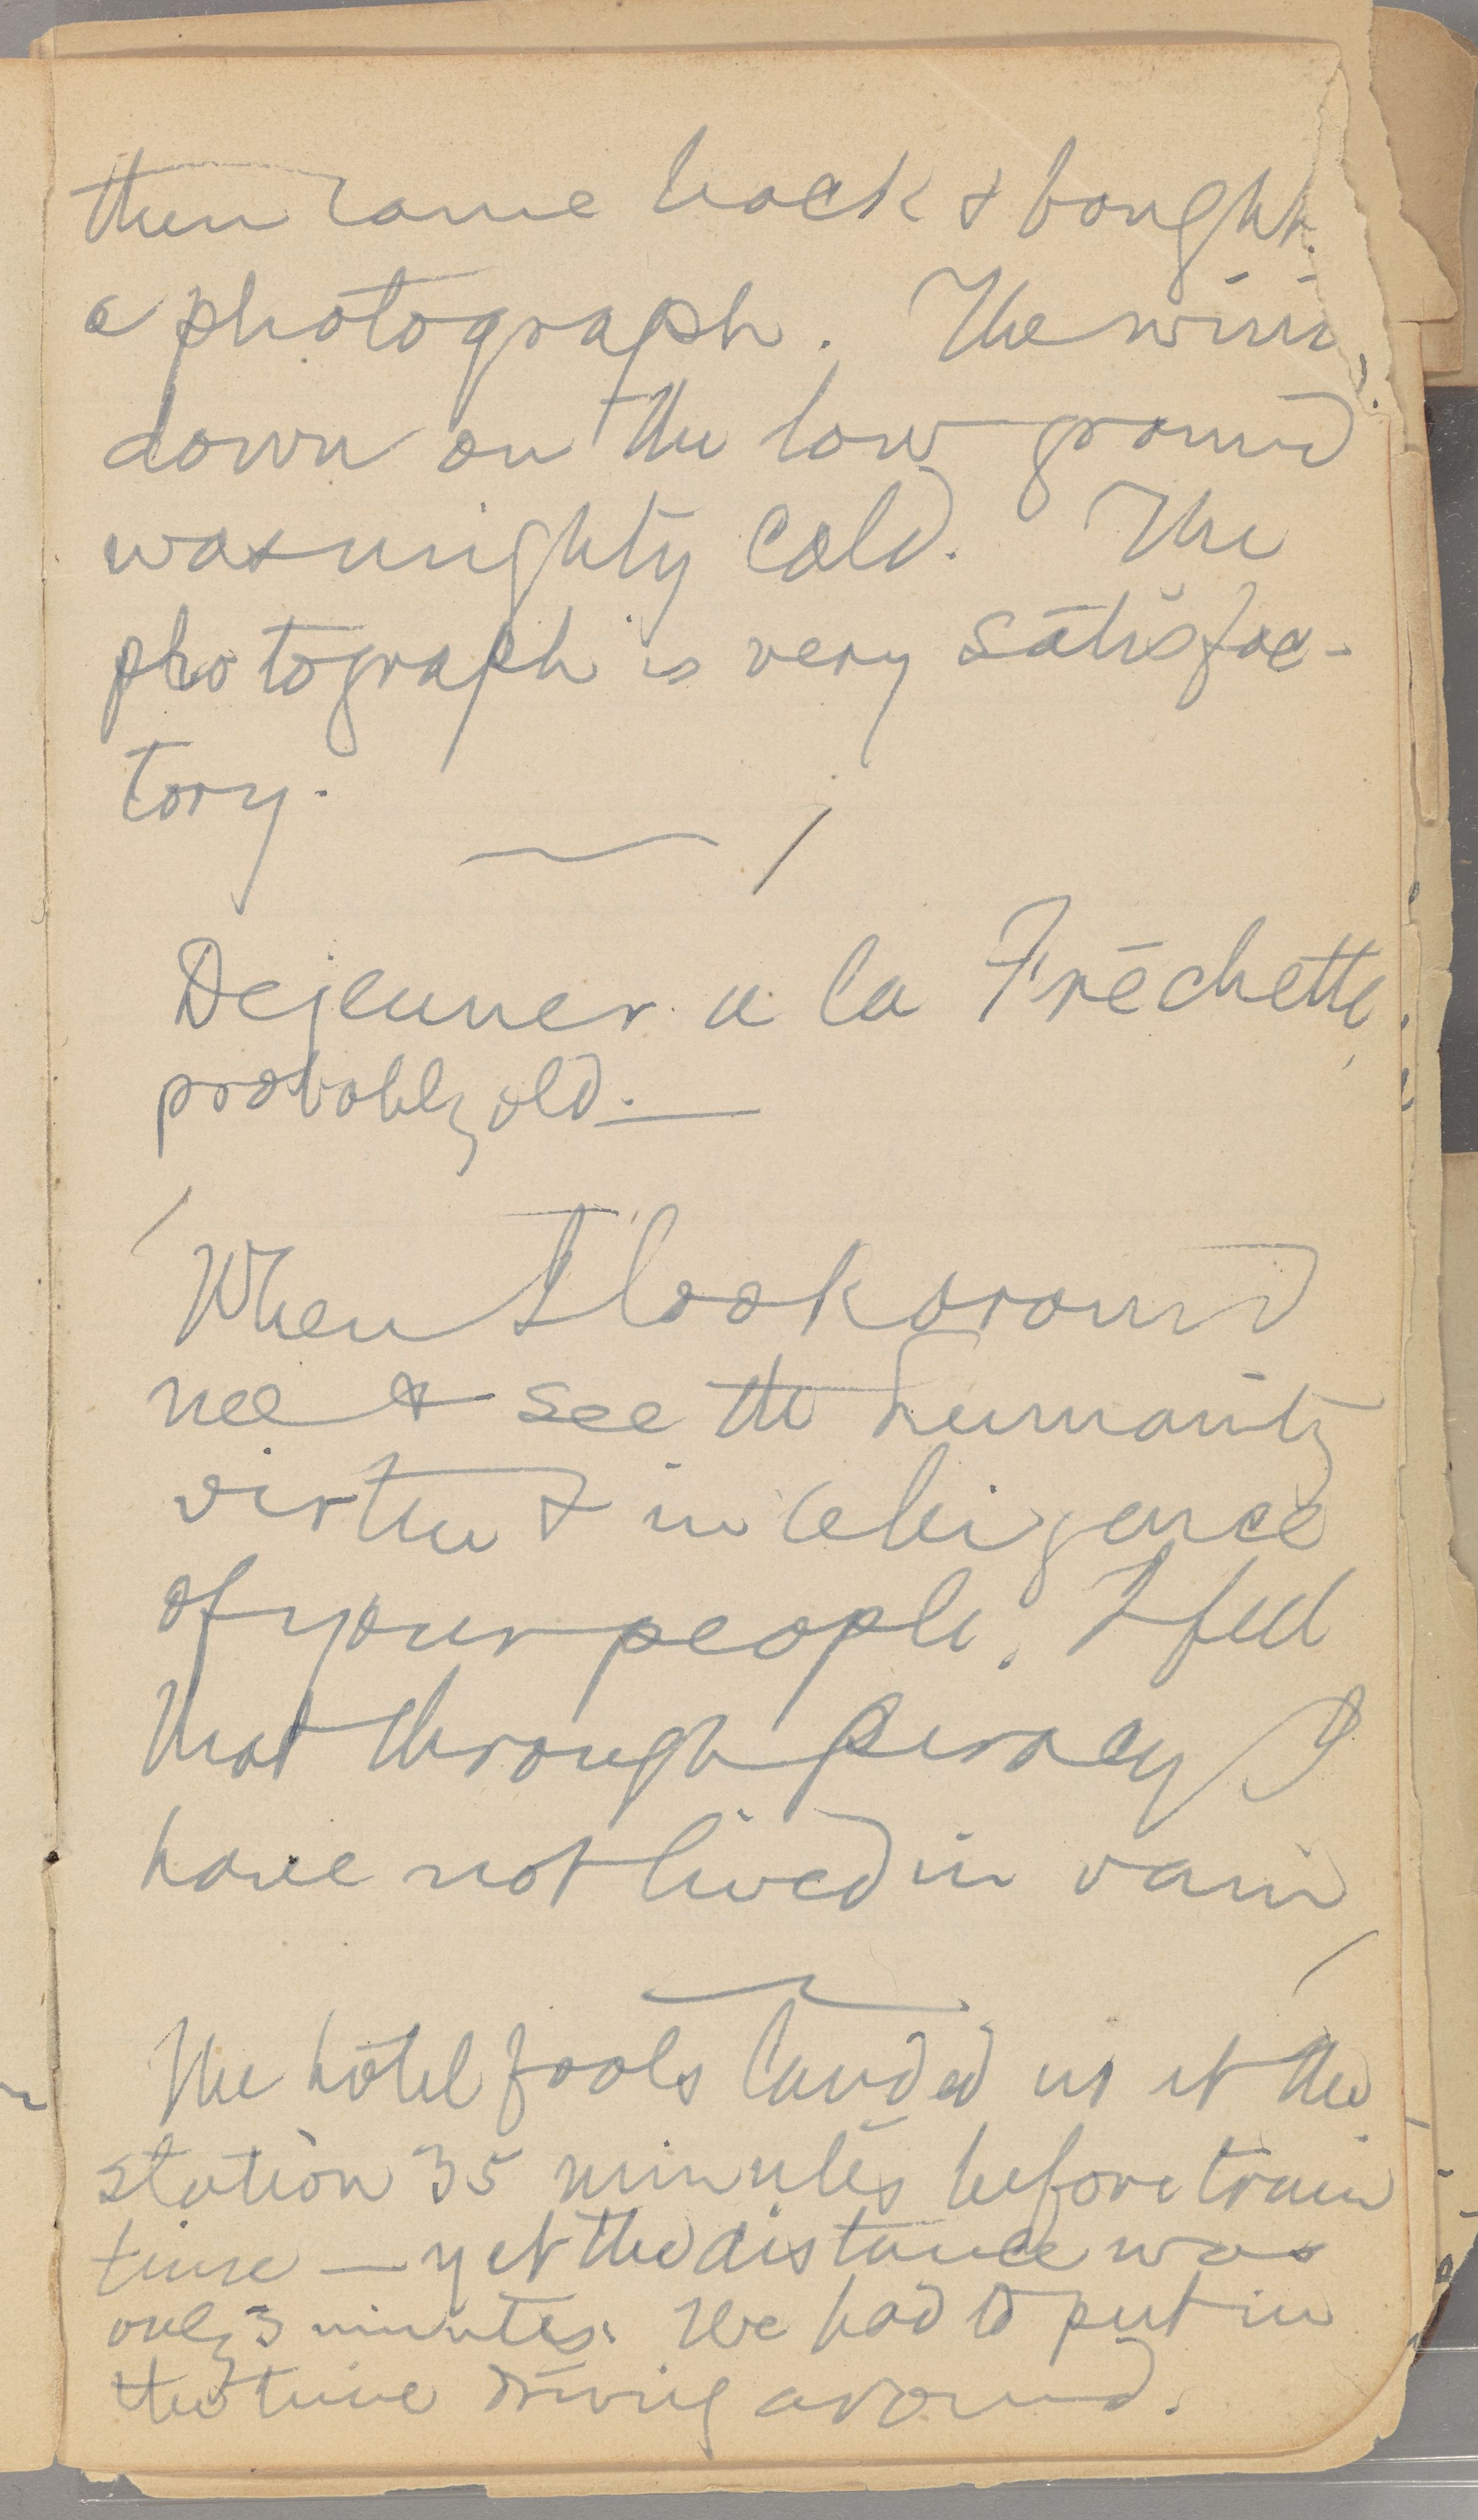 then came back & bought
a photograph. The wind
down on the low ground
was mighty cold. The
photograph is very satisfac-
tory.
Dejeuner a la Fréchette,
probably old. —
When I look around
me & see the humanity
virtue & intelligence
of your people, I feel
that through piracy I
have not lived in vain
The hotel fools landed us at the
station 35 minutes before train
time — yet the distance was
only 3 minutes. We had to put in
the time driving around.